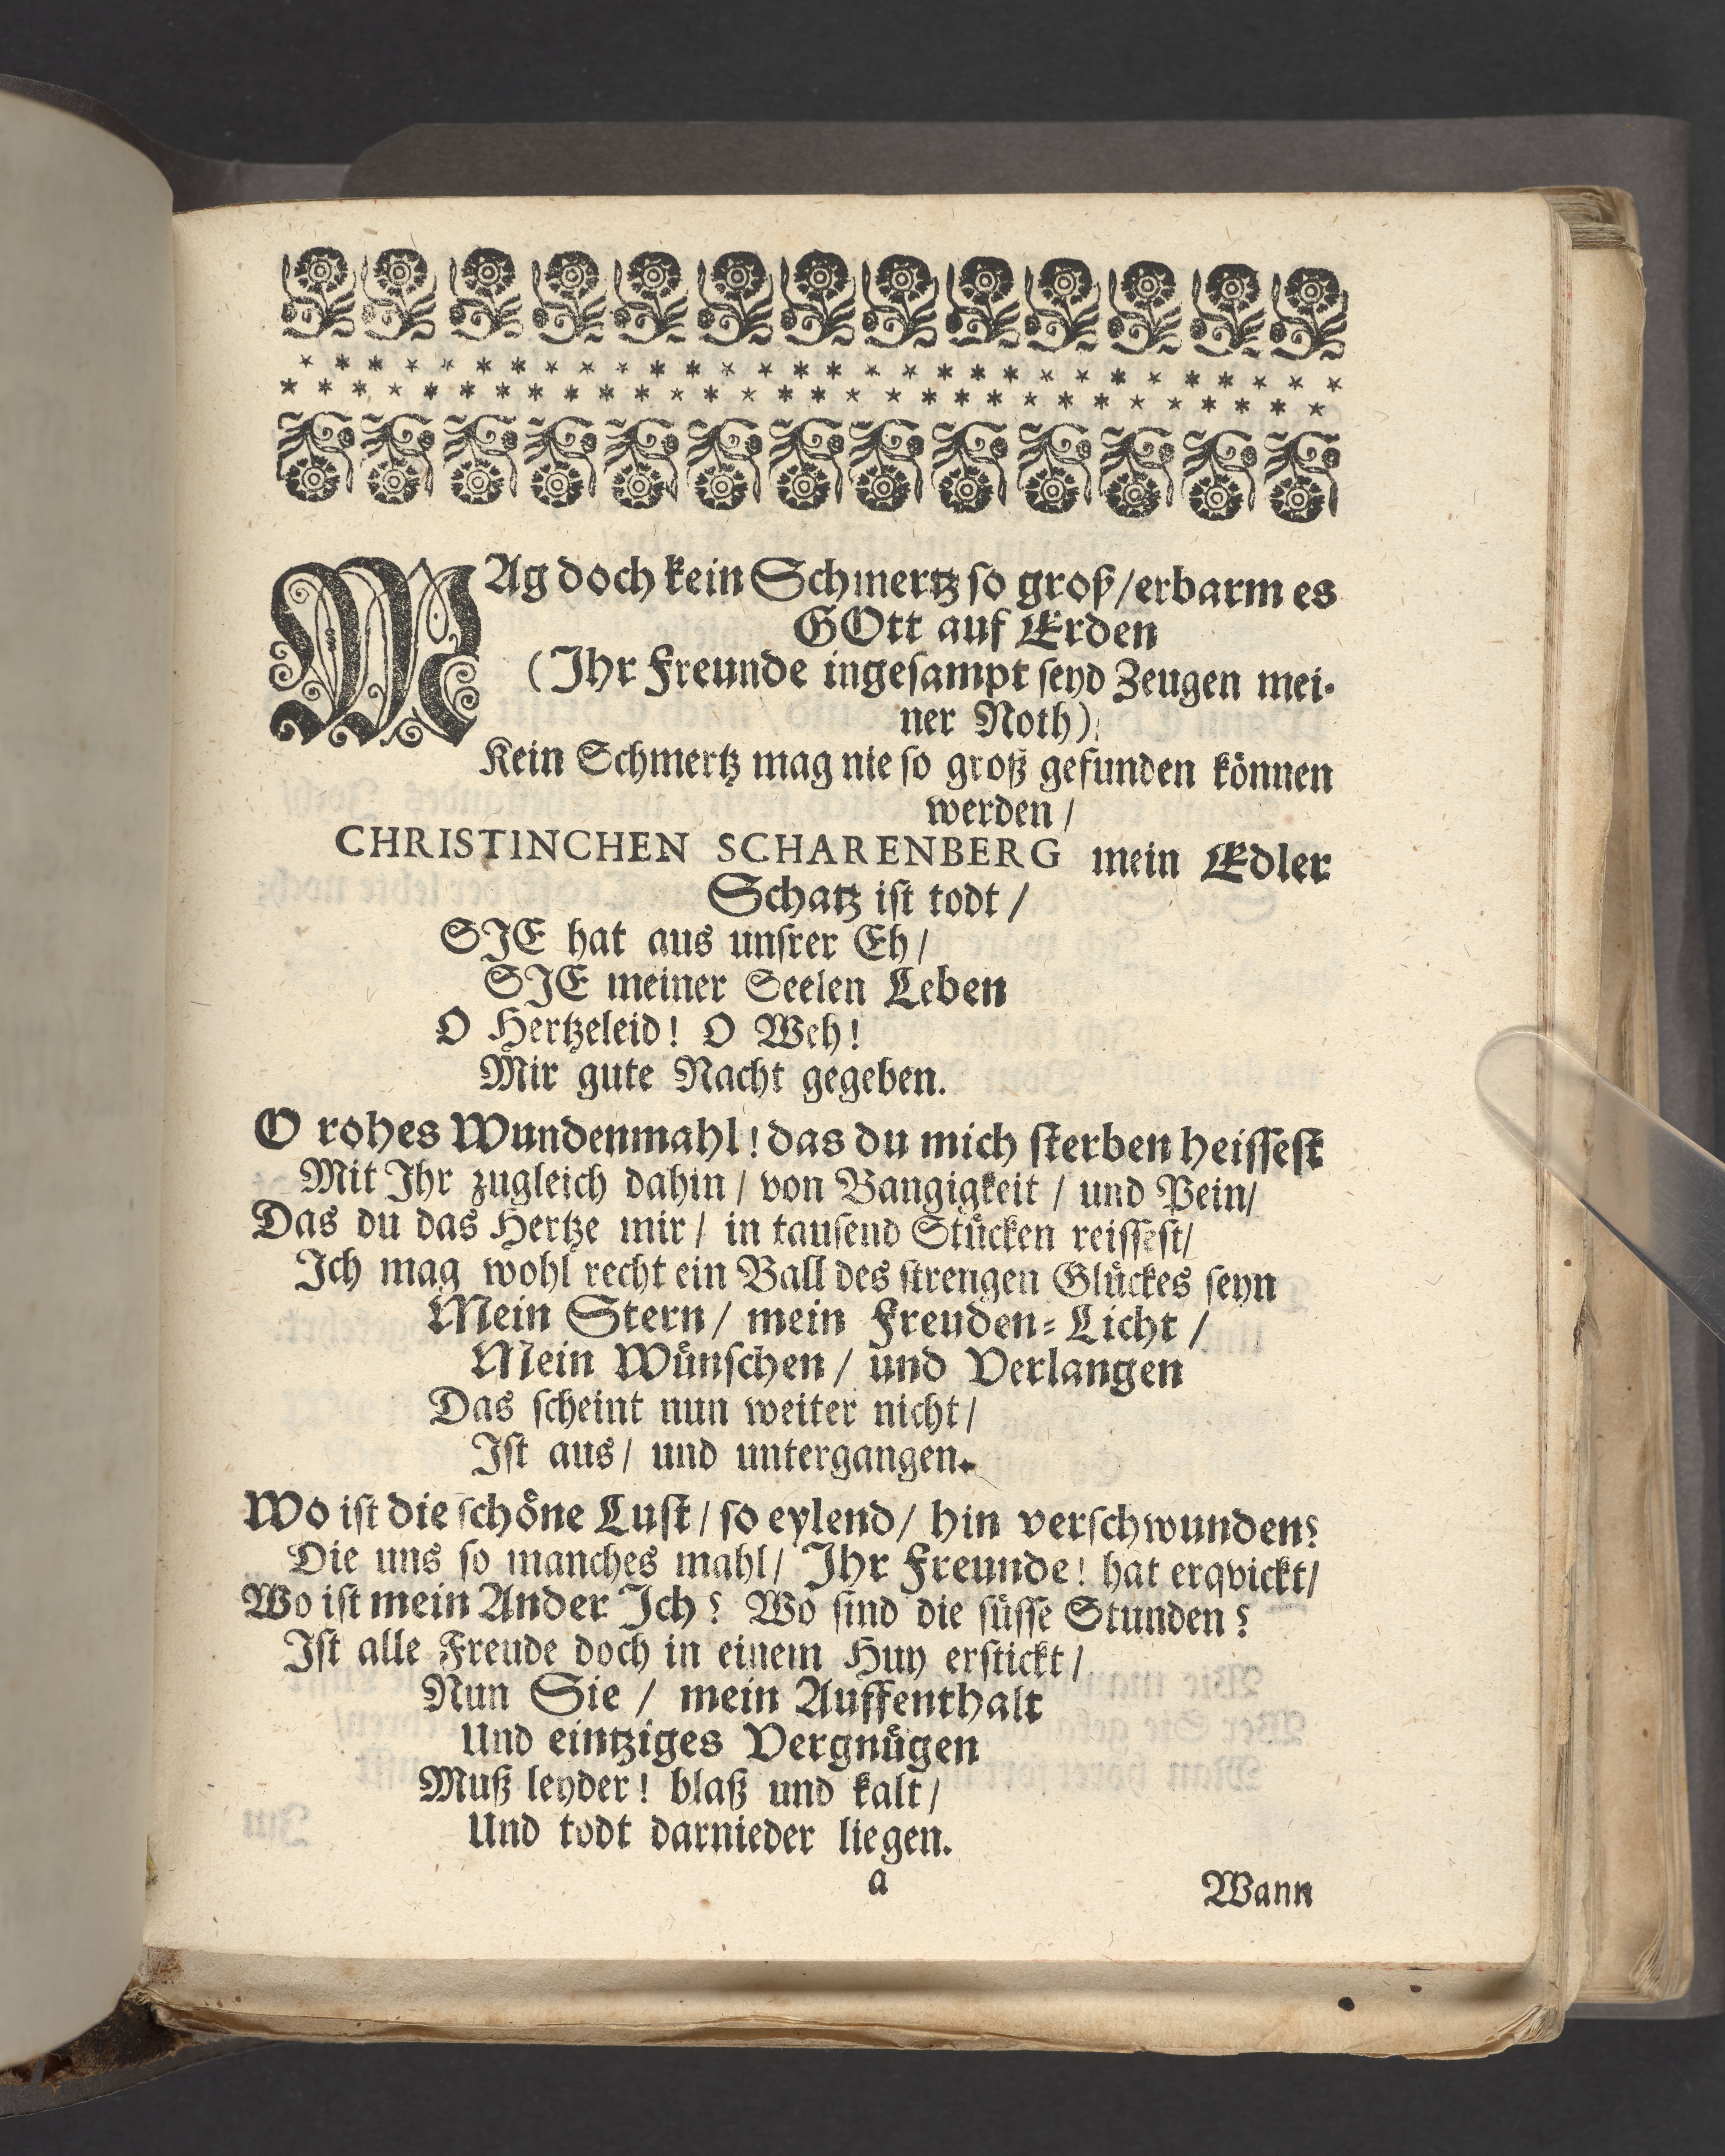 MAg doch kein Schmertz so groß/erbarm es
GOtt auf Erden
(Ihr Freunde ingesampt seyd Zeugen mei-
ner Noth)
Kein Schmertz mag nie so groß gefunden können
werden/
CHRISTINCHEN SCHARENBERG mein Edler
Schatz ist todt/
SIE hat aus unsrer Eh/
SIE meiner Seelen Leben
O Hertzeleid! O Weh!
Mir gute Nacht gegeben.
O rohes Wundenmahl! das du mich sterben heissest
Mit Ihr zugleich dahin/ von Bangigkeit/ und Pein/
Das du das Hertze mir/ in tausend Stücken reissest/
Ich mag wohl recht ein Ball des strengen Glückes seyn
Mein Stern/ mein Freuden-Licht/
Mein Wünschen/ und Verlangen
Das scheint nun weiter nicht/
Ist aus/ und untergangen.
Wo ist die schöne Lust/ so eylend/ hin verschwunden?
Die uns so manches mahl/ Ihr Freunde! hat erqvickt/
Wo ist mein Ander Ich? Wo sind die süsse Stunden?
Ist alle Freude doch in einem Huy erstickt/
Nun Sie/ mein Auffenthalt
Und eintziges Vergnügen
Muß leyder! blaß und kalt/
Und todt darnieder liegen.
a
Wann